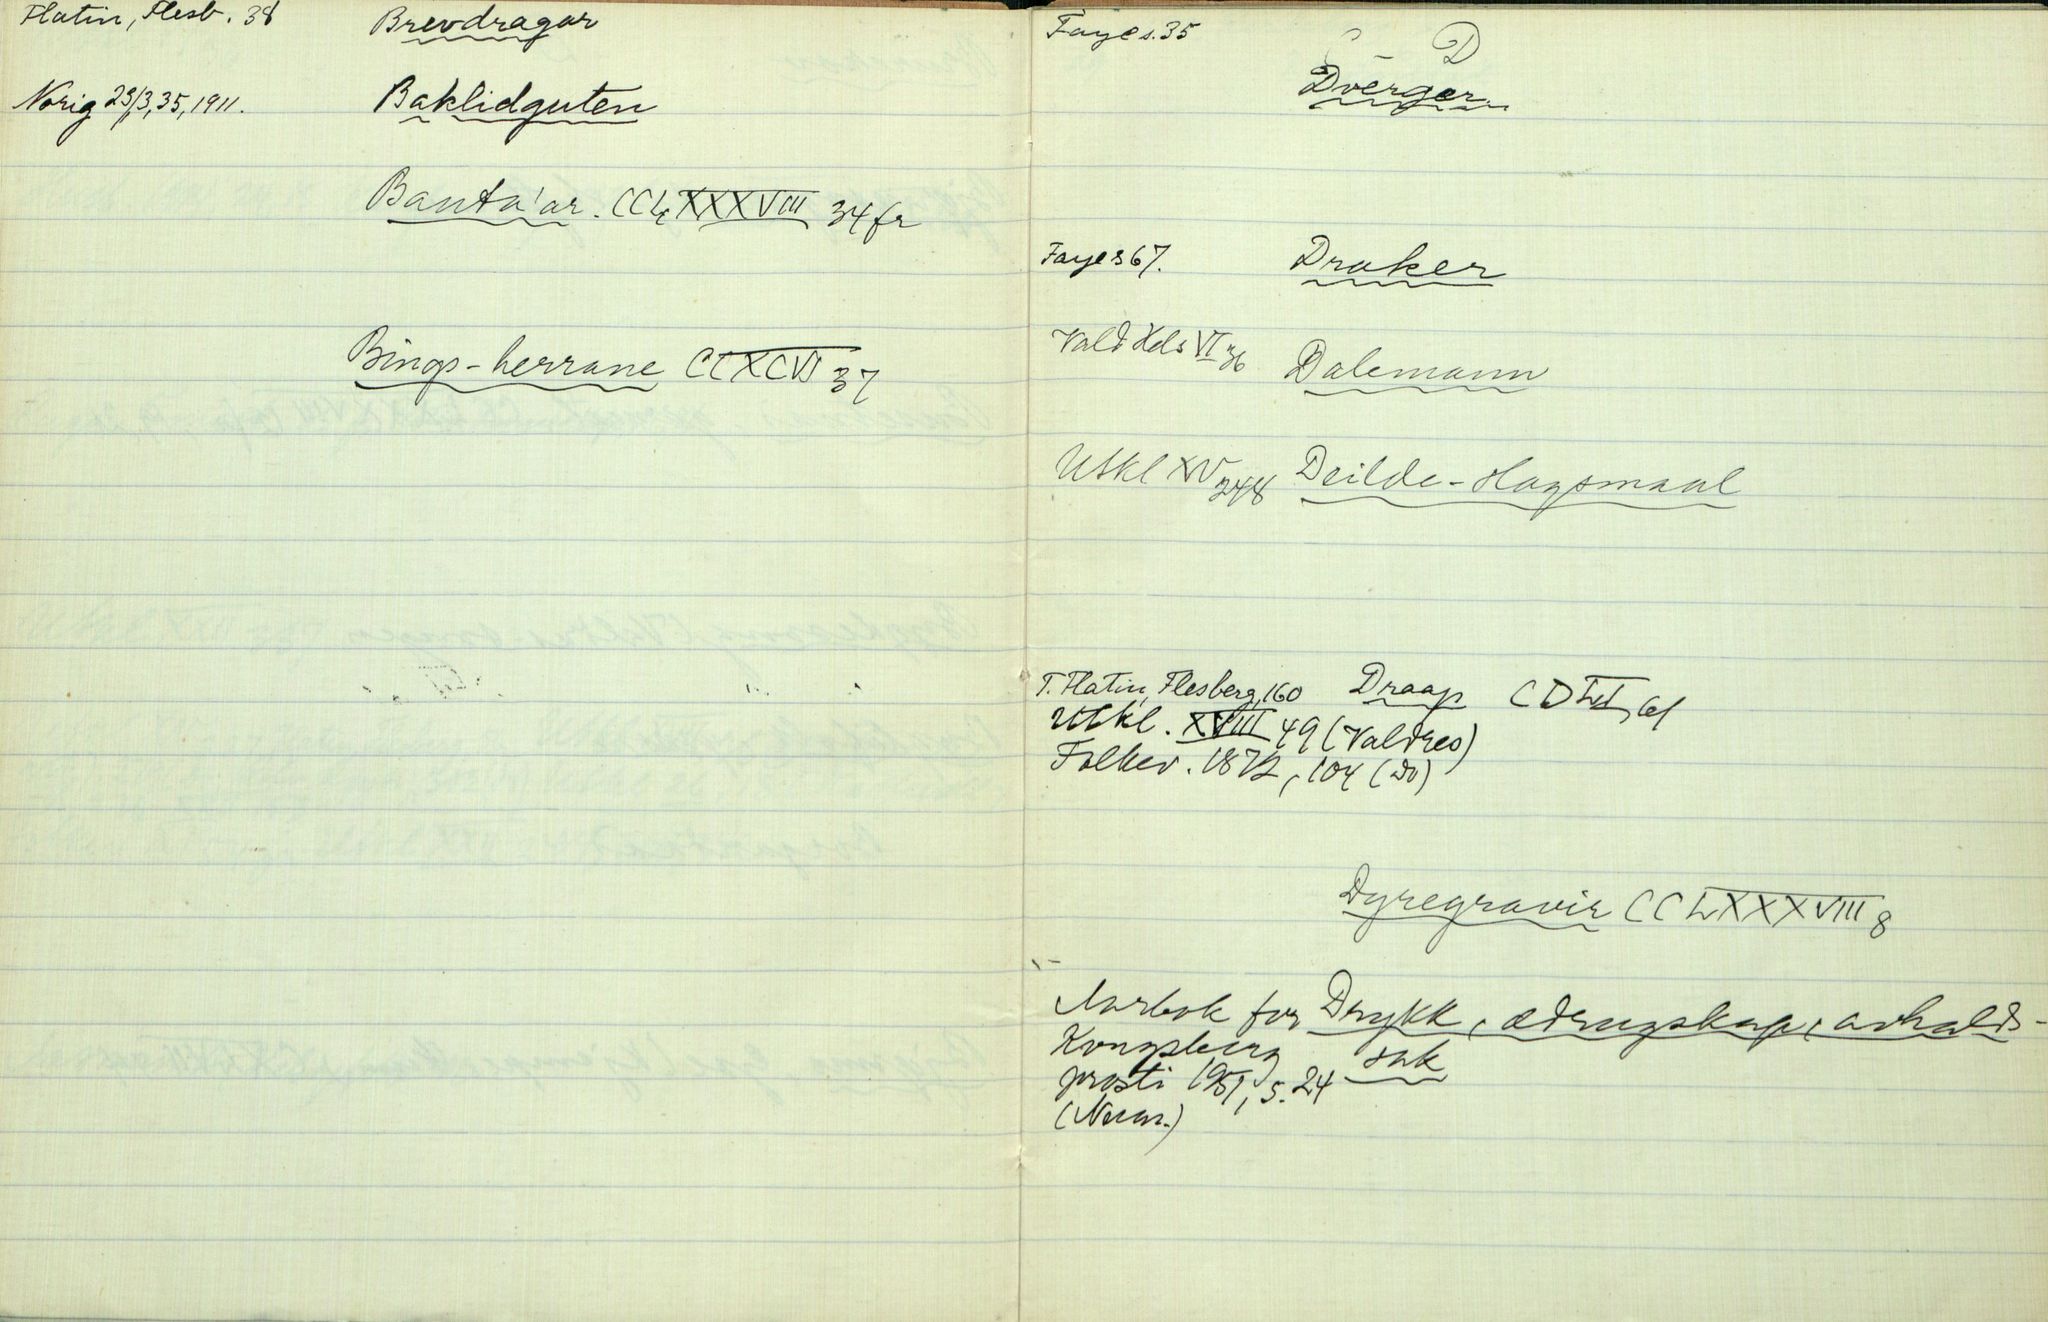 Flatin, Flesb. 38 Brevdragar
Norig 23/3, 35, 1911. Baklidguten
Banta'ar. CCLXXXVIII 34 fr
Bings-herrane CCXCVI 37
Faye s. 35 D
Dverger
Faye s 67. Draker
Vald Hels VI 36 Dalemann
Utkl XV 248 Deilde-Hagsmaal
T. Flatin, Flesberg, 160 Draap CDLI, 61
Utkl. XVIII 49 (Valdres)
Folkev. 1872, 104 (do)
Dyregravir CCLXXXVIII 8
Aarbok for Drykk, edrugskap, avhalds-
Kongsberg sak
prosti 1951, s. 24
(Num.)